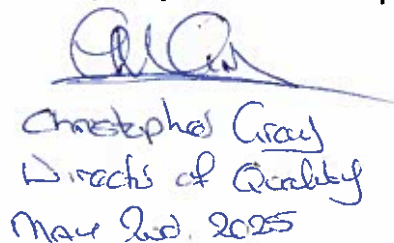 Christopher Gray
Director of Quality
May 2nd. 2025